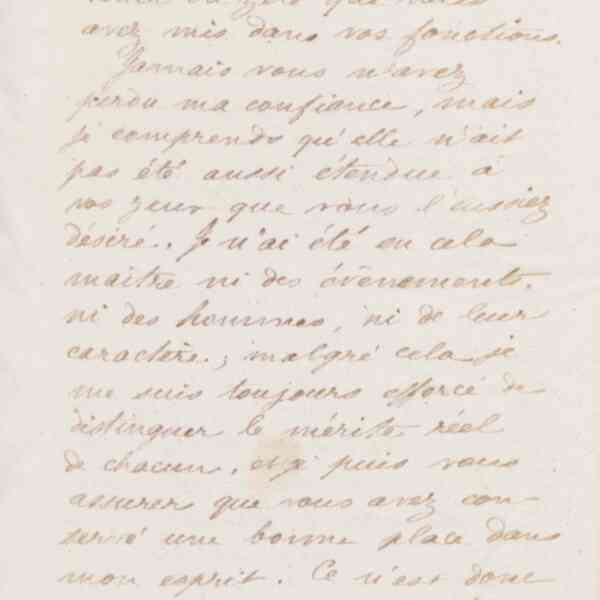 zèle que vous
avez mis dans vos fonctions.
Jamais vous n'avez
perdu ma confiance, mais
je comprends qu'elle n'ait
pas été aussi étendue à
vos yeux que vous l'eussiez
désiré. Je n'ai été en cela
maître ni des évènements,
ni des hommes, ni de leur
caractère; malgré cela je
me suis toujours efforcé de
distinguer le mérite réel
de chacun, et je puis vous
assurer que vous avez con-
servé une bonne place dans
mon esprit. Ce n'est donc